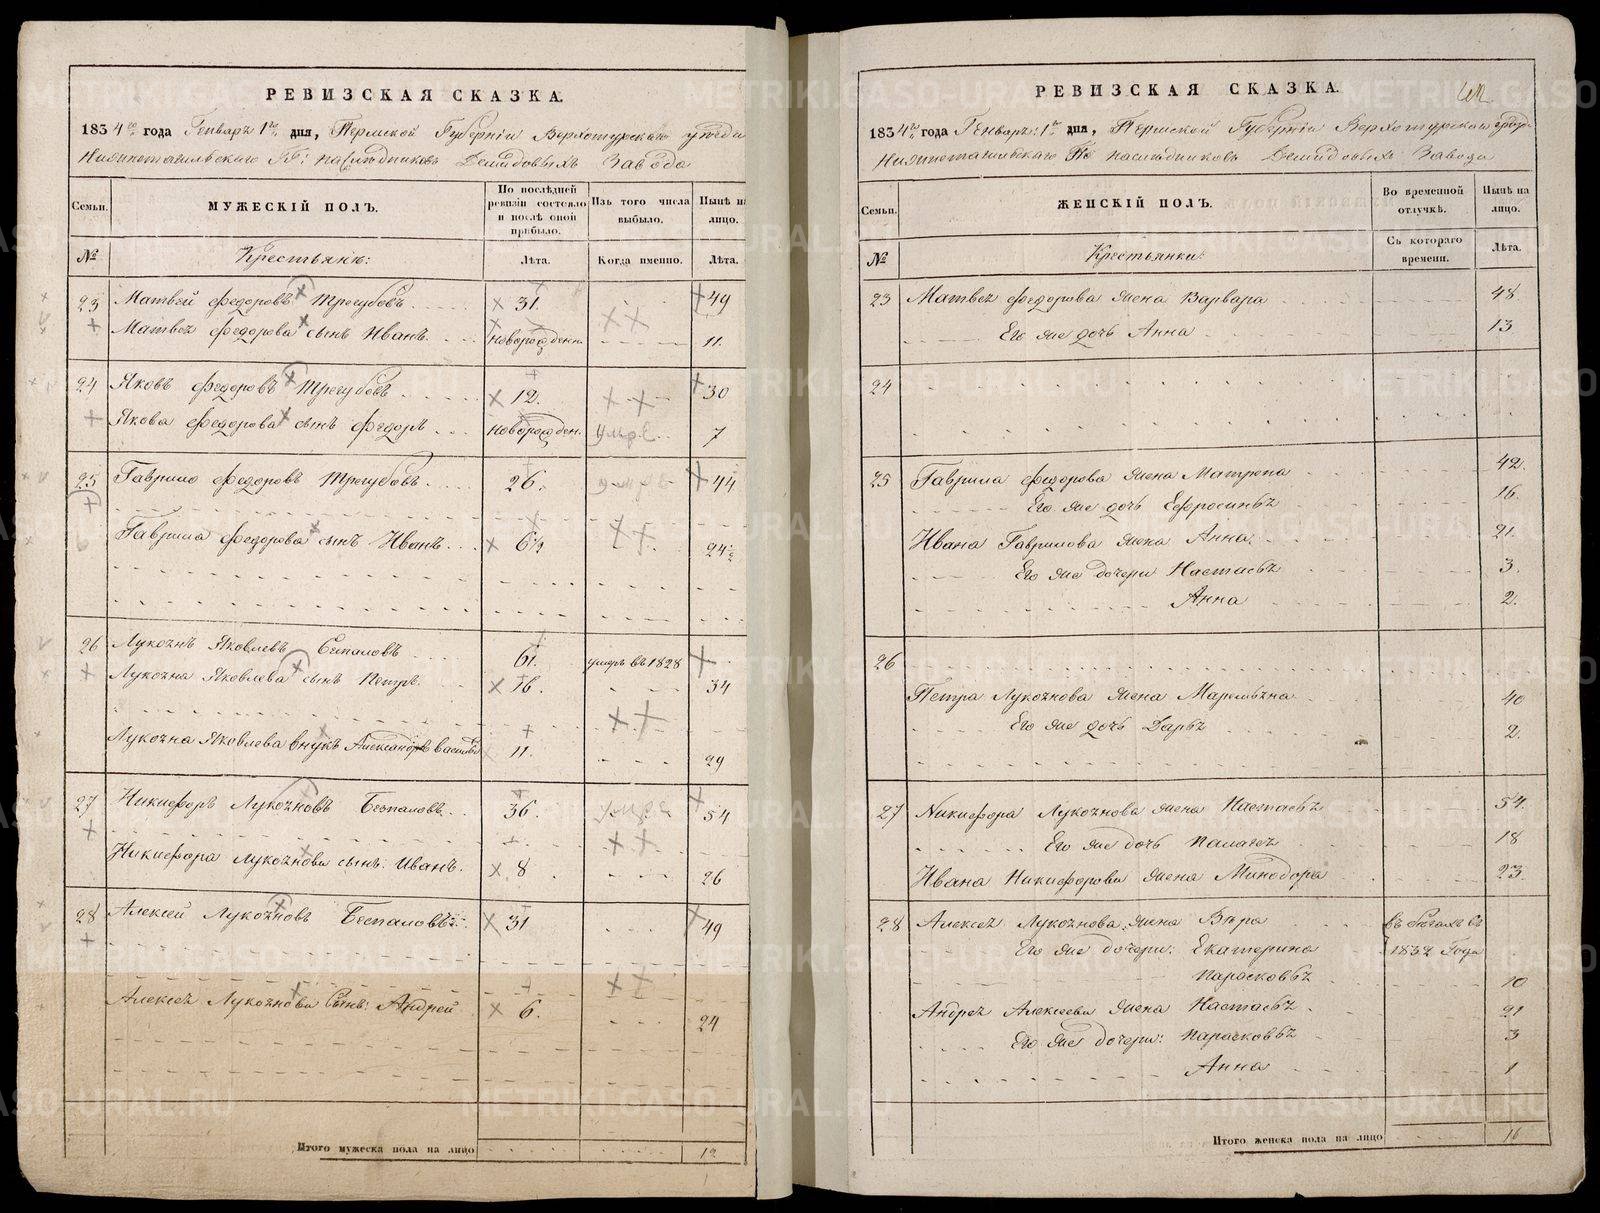 РЕВИЗСКАЯ СКАЗКА.
1834го года Генваря 1го дня, Пермской Губернiи Верхотурскаго уезда
Нижнетагильскаго ГГ: наследниковъ Демидовыхъ Завода
Семьи.
МУЖЕСКІЙ ПОЛЪ.
По послѣдней ревизіи состояло и послѣ оной прибыло.
Изъ того числа выбыло.
Нынѣ на лицо.
№
Крестьяне:
Лѣта.
Когда именно.
Лѣта.
23 Матвей Федоровъ Трегубовъ 31. 49
Матвея Федорова сынъ Иванъ. новорожден. 11.
24 Яковъ Федоровъ Трегубовъ 12. 30
Якова Федорова сынъ Федоръ новорожден. умре 7
25 Гаврило Федоровъ Трегубовъ. 26. умре 44
Гаврила Федорова сынъ Иванъ. 6½ 24½
26 Лукоянъ Яковлевъ Беспаловъ 61. умеръ въ 1828
Лукояна Яковлева сынъ Петръ. 16. 34
Лукояна Яковлева внукъ Александръ 11. 29
27 Никифоръ Лукояновъ Беспаловъ. 36. умре 54
Никифора Лукоянова сынъ: Иванъ. 8 26
28 Алексей Лукояновъ Беспаловъ: 31 49
Алексея Лукоянова Сынъ: Андрей 6. 24
Итого мужеска пола на лицо 12
РЕВИЗСКАЯ СКАЗКА.
1834го года Генваря 1го дня, Пермской Губернiи Верхотурскаго уезда
Нижнетагильскаго ГГ наследниковъ Демидовыхъ Завода
Семьи.
ЖЕНСКІЙ ПОЛЪ.
Во временной отлучкѣ.
Нынѣ на лицо.
№
Крестьянки:
Съ котораго времени.
Лѣта.
23 Матвея Федорова жена Варвара 48.
Его же дочь Анна 13
24
25 Гаврила Федорова жена Матрена 42.
Его же дочь Ефросинья 16.
Ивана Гаврилова жена Анна. 21.
Его же дочери Настасья 3.
Анна 2.
26
Петра Лукоянова жена Маремьяна 40
Его же дочь Дарья 2.
27 Никифора Лукоянова жена Настасья 54.
Его же дочь Палагея 18
Ивана Никифорова жена Минодора 23.
28 Алексея Лукоянова жена Вѣра въ бегахъ съ
Его же дочери: Екатерина 1832 Года
Парасковья 10
Андрея Алексеева жена Настасья 21
Его же дочери: Парасковья 3
Анна 1
Итого женска пола на лицо 16
METRIKI.GASO-URAL.RU